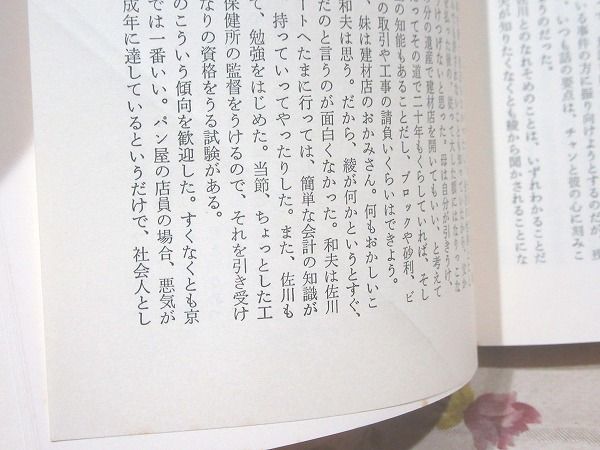 る事件の方に振り向けようとするのだが、残
。いつも話の要点は、チャンと彼の心に刻みこ
うのだった。
佐川とのなれそめのことは、いずれわかることだ
が知りたくなくとも綾から聞かされることにな
つけないと思った。母は自分が引きうけ、
分の遺産で建材店を開いてもいい、と考えて
てその道で二十年もくらしていれば、そし
の知能もあることだし、ブロックや砂利、ビ
の取引や工事の請負いくらいはできよう。
、妹は建材店のおかみさん。何もおかしいこ
和夫は思う。だから、綾が何かというとすぐ、
だのと言うのが面白くなかった。和夫は佐川
ートへたまに行っては、簡単な会計の知識が
、持っていってやったりした。また、佐川も
て、勉強をはじめた。当節、ちょっとした工
保健所の監督をうけるので、それを引き受け
なりの資格をうる試験がある。
のこういう傾向を歓迎した。すくなくとも京
では一番いい。パン屋の店員の場合、悪気が
成年に達しているというだけで、社会人とし